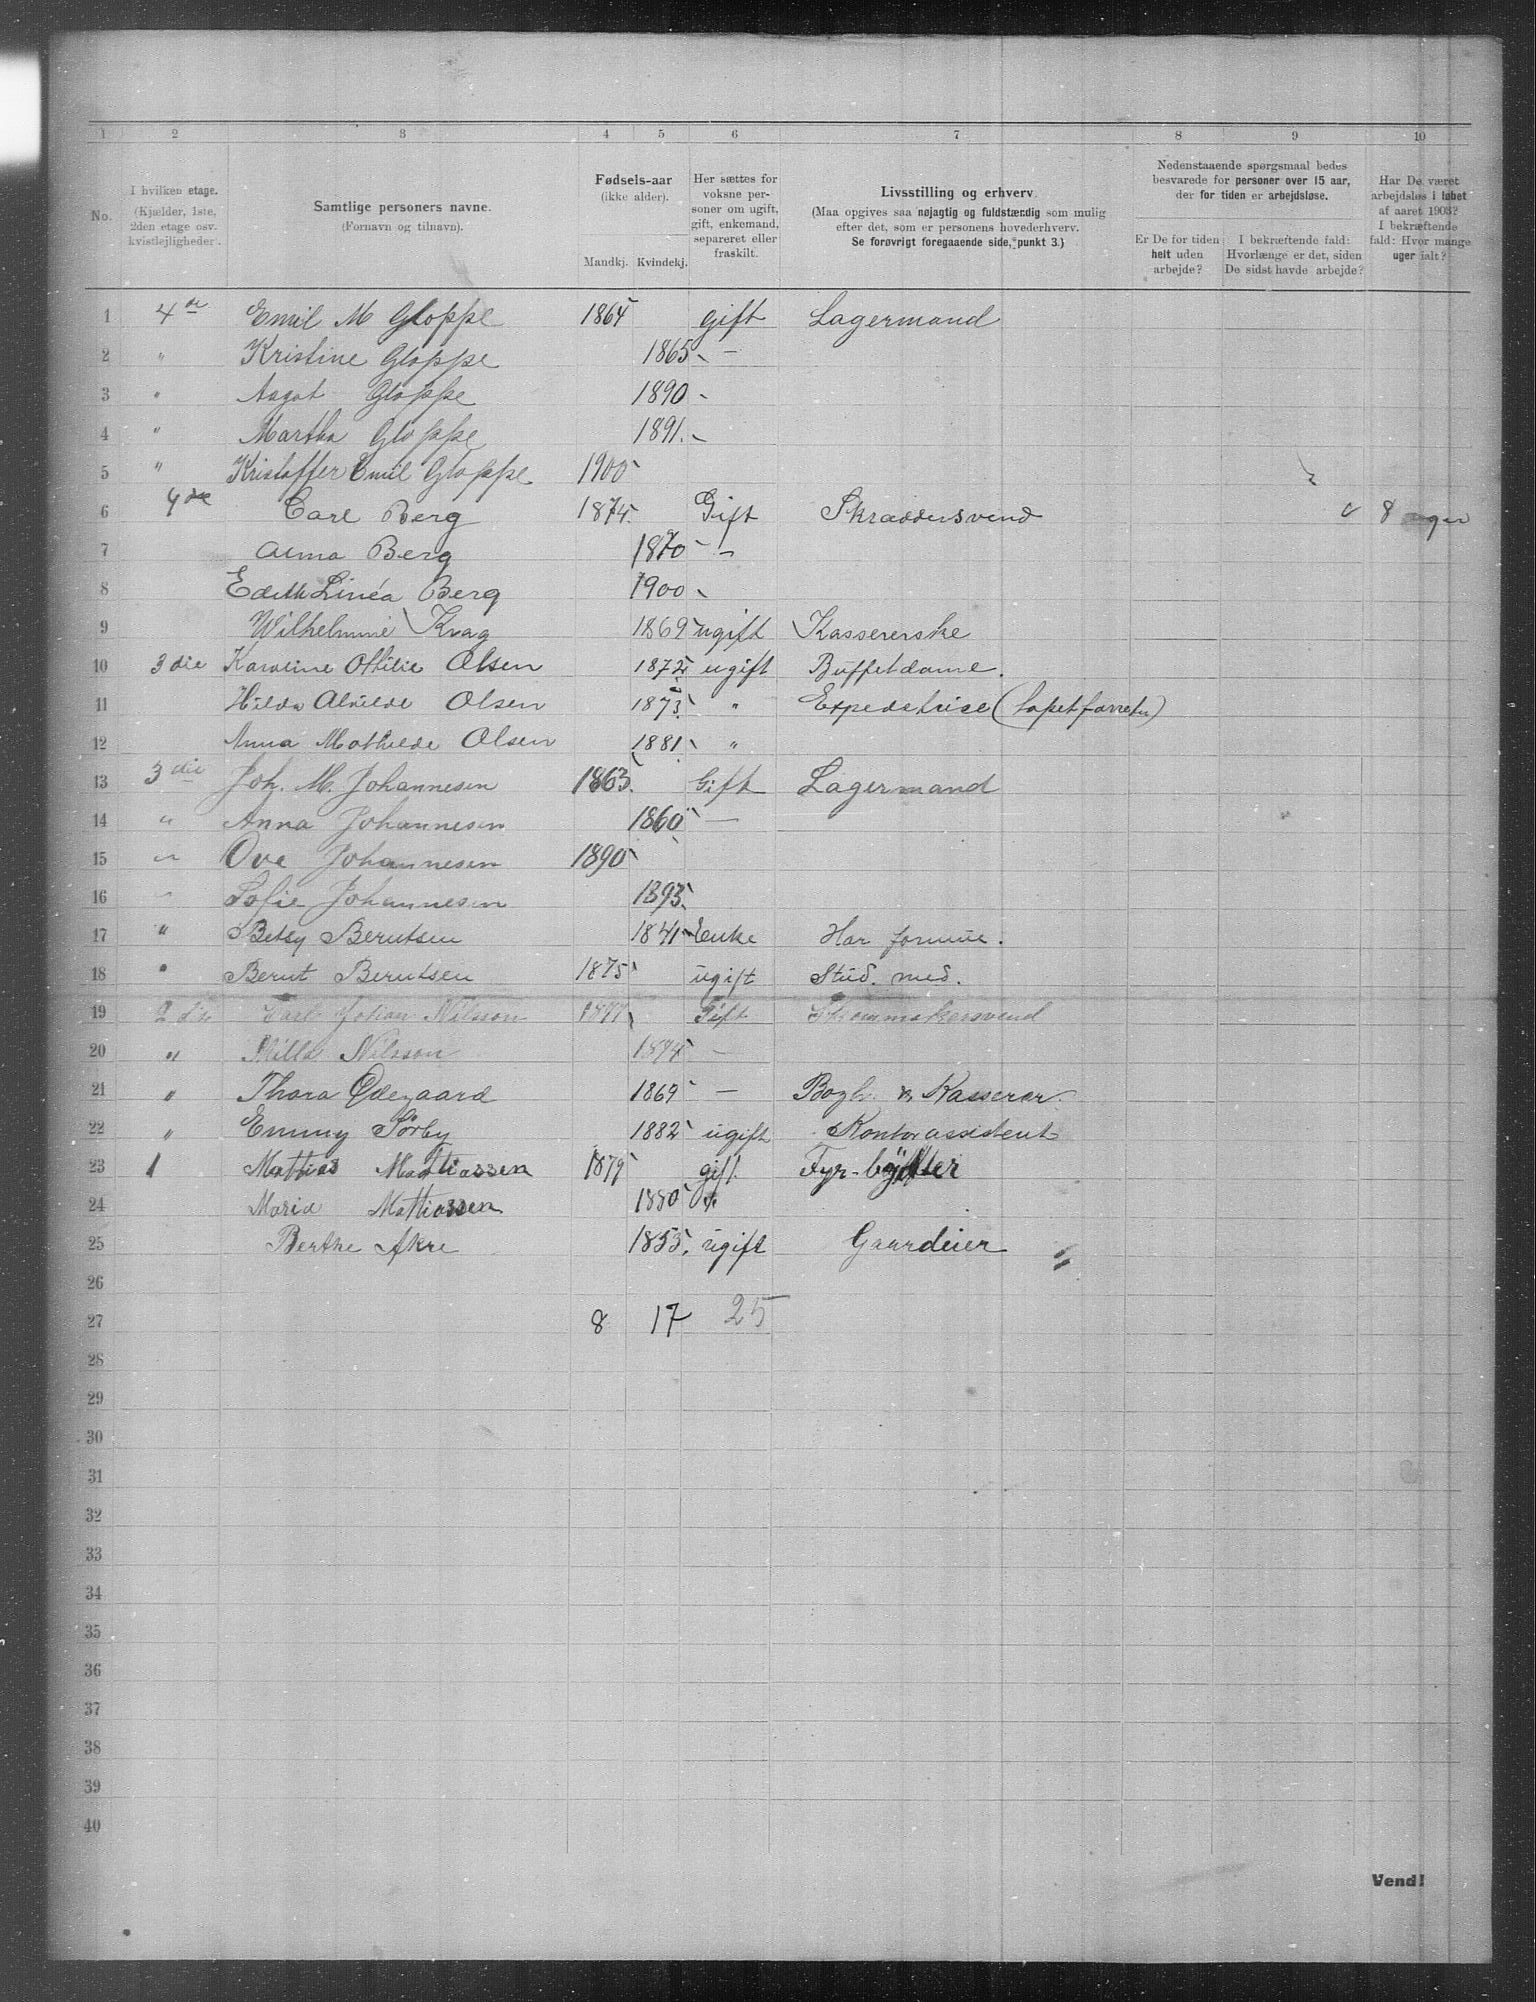 1 2 3 4 5 6 7 8 9 10
No.
I hvilken etage.
(Kjælder, 1ste,
2den etage osv.
kvistlejligheder.
Samtlige personers navne.
(Fornavn og tilnavn).
Fødsels-aar
(ikke alder).
Mandkj. Kvindekj.
Her sættes for
voksne per-
soner om ugift,
gift, enkemand,
separeret eller
fraskilt.
Livsstilling og erhverv.
(Maa opgives saa nøjagtig og fuldstændig som mulig
efter det, som er personens hovederhverv.
Se forøvrigt foregaaende side, punkt 3.)
Nedenstaaende spørgsmaal bedes
besvarede for personer over 15 aar,
der for tiden er arbejdsløse.
Er De for tiden
helt uden
arbejde?
I bekræftende fald:
Hvorlænge er det, siden
De sidst havde arbejde?
Har De været
arbejdsløs i løbet
af aaret 1903?
I bekræftende
fald: Hvor mange
uger ialt?
1 4de Emil M Gloppe 1864 Gift Lagermand
2 " Kristine Gloppe 1865 —
3 " Aagot Gloppe 1890
4 " Martha Gloppe 1891
5 " Kristoffer Emil Gloppe 1900
6 4de Carl Berg 1874 Gift Skræddersvend 8 uger
7 Alma Berg 1870 —
8 Edith Linéa Berg 1900
9 Wilhelmine Krag 1869 ugift Kassererske
10 3die Karoline Ottilie Olsen 1872 ugift Buffetdame.
11 Hilda Alvilde Olsen 1873 " Expeditrice (tapetforretn)
12 Anna Mathilde Olsen 1881 "
13 3die Joh. M. Johannesen 1863 Gift Lagermand
14 " Anna Johannesen 1860 —
15 " Ove Johannesen 1890
16 " Sofie Johannesen 1893
17 " Betsy Berntsen 1841 Enke Har formue.
18 " Bernt Berntsen 1875 ugift Stud. med.
19 2 Carl Johan Nilsson 1877 Gift Skommakersvend
20 " Milla Nilsson 1874 —
21 " Thora Ødegaard 1869 — Bogh. & Kasserer
22 " Emmy Sörby 1882 ugift Kontorassistent
23 1 Mattias Mattiassen 1879 gift Fyr-bøtter
24 Maria Mattiassen 1880
25 Berthe Akre 1855 ugift Gaardeier
26
27 8 17 25
28
29
30
31
32
33
34
35
36
37
38
39
40
Vend!